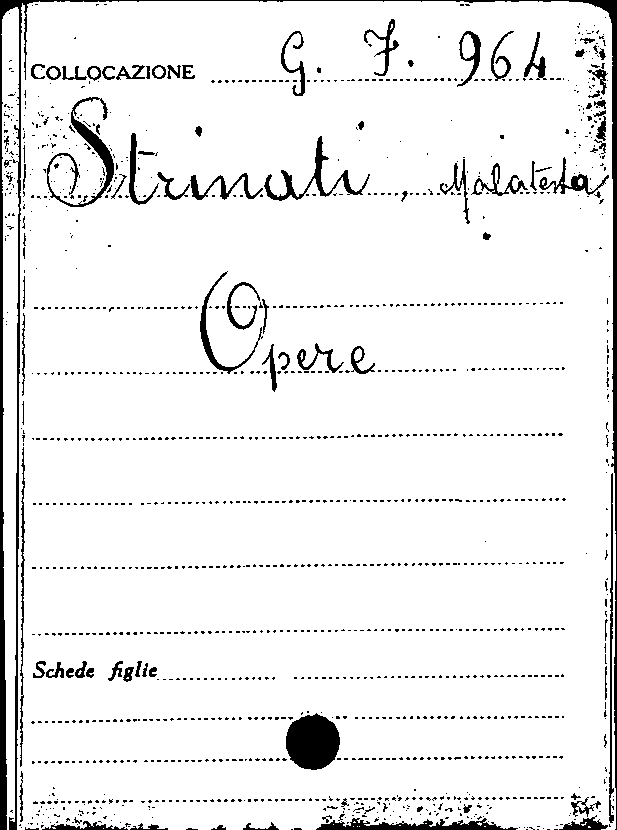 COLLOCAZIONE G. F. 964
Strinati, Malatesta.
Opere
Schede figlie